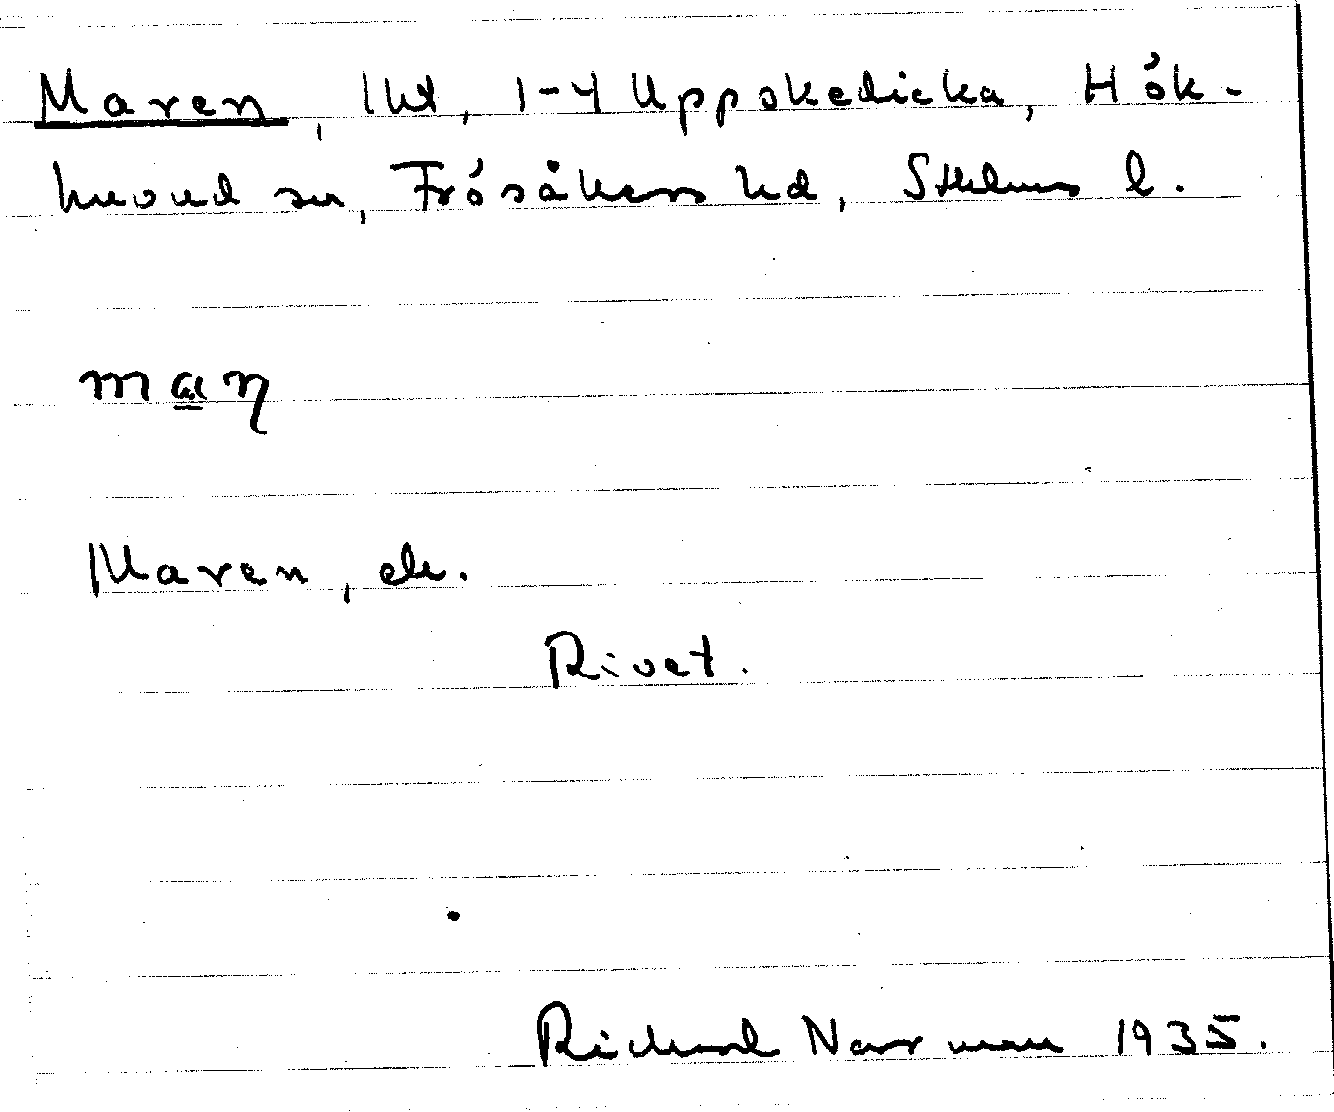 Maren, lht, 1-4 Uppskedicka, Hök-
huvud sn, Frösåkers hd, Sthlms l.
man
Maren, ek.
Rivet.
Richard Norrman 1935.